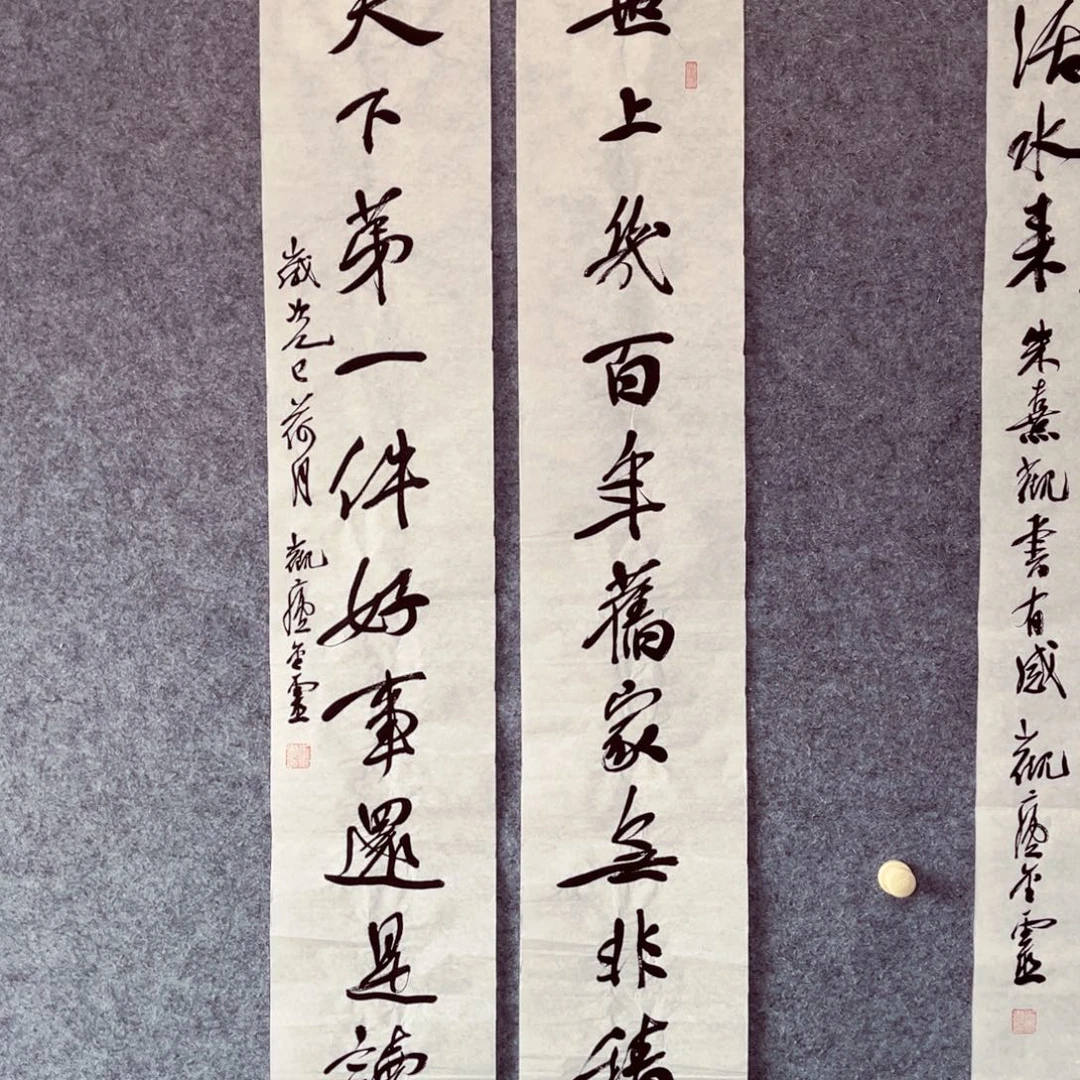 活水来 朱熹觀書有感 觀 靈
世上幾百年舊家無非積
天下第一件好事還是讀
歲次乙巳荷月 觀 靈